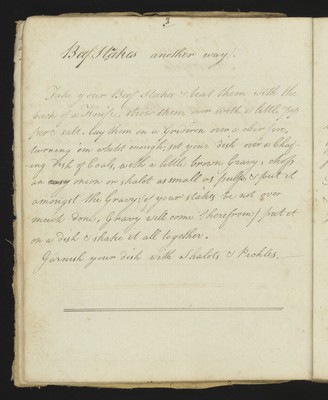 3
Beef Stakes another way.
Take your Beef Stakes & beat them with the
back of a Knife, strew them over with a little pep
per & salt, lay them on a Gridiron over a clear fire,
turning 'em whilst enough; set your dish over a Chaf-
ing Dish of Coals, with a little brown Gravy, chop
an onion or shalot as small as pulp, & put it
amongst the Gravy; if your stakes be not over
much done, Gravy will come therefrom; put it
on a dish & shake it all together.
Garnish your dish with Shalots & Pickles.